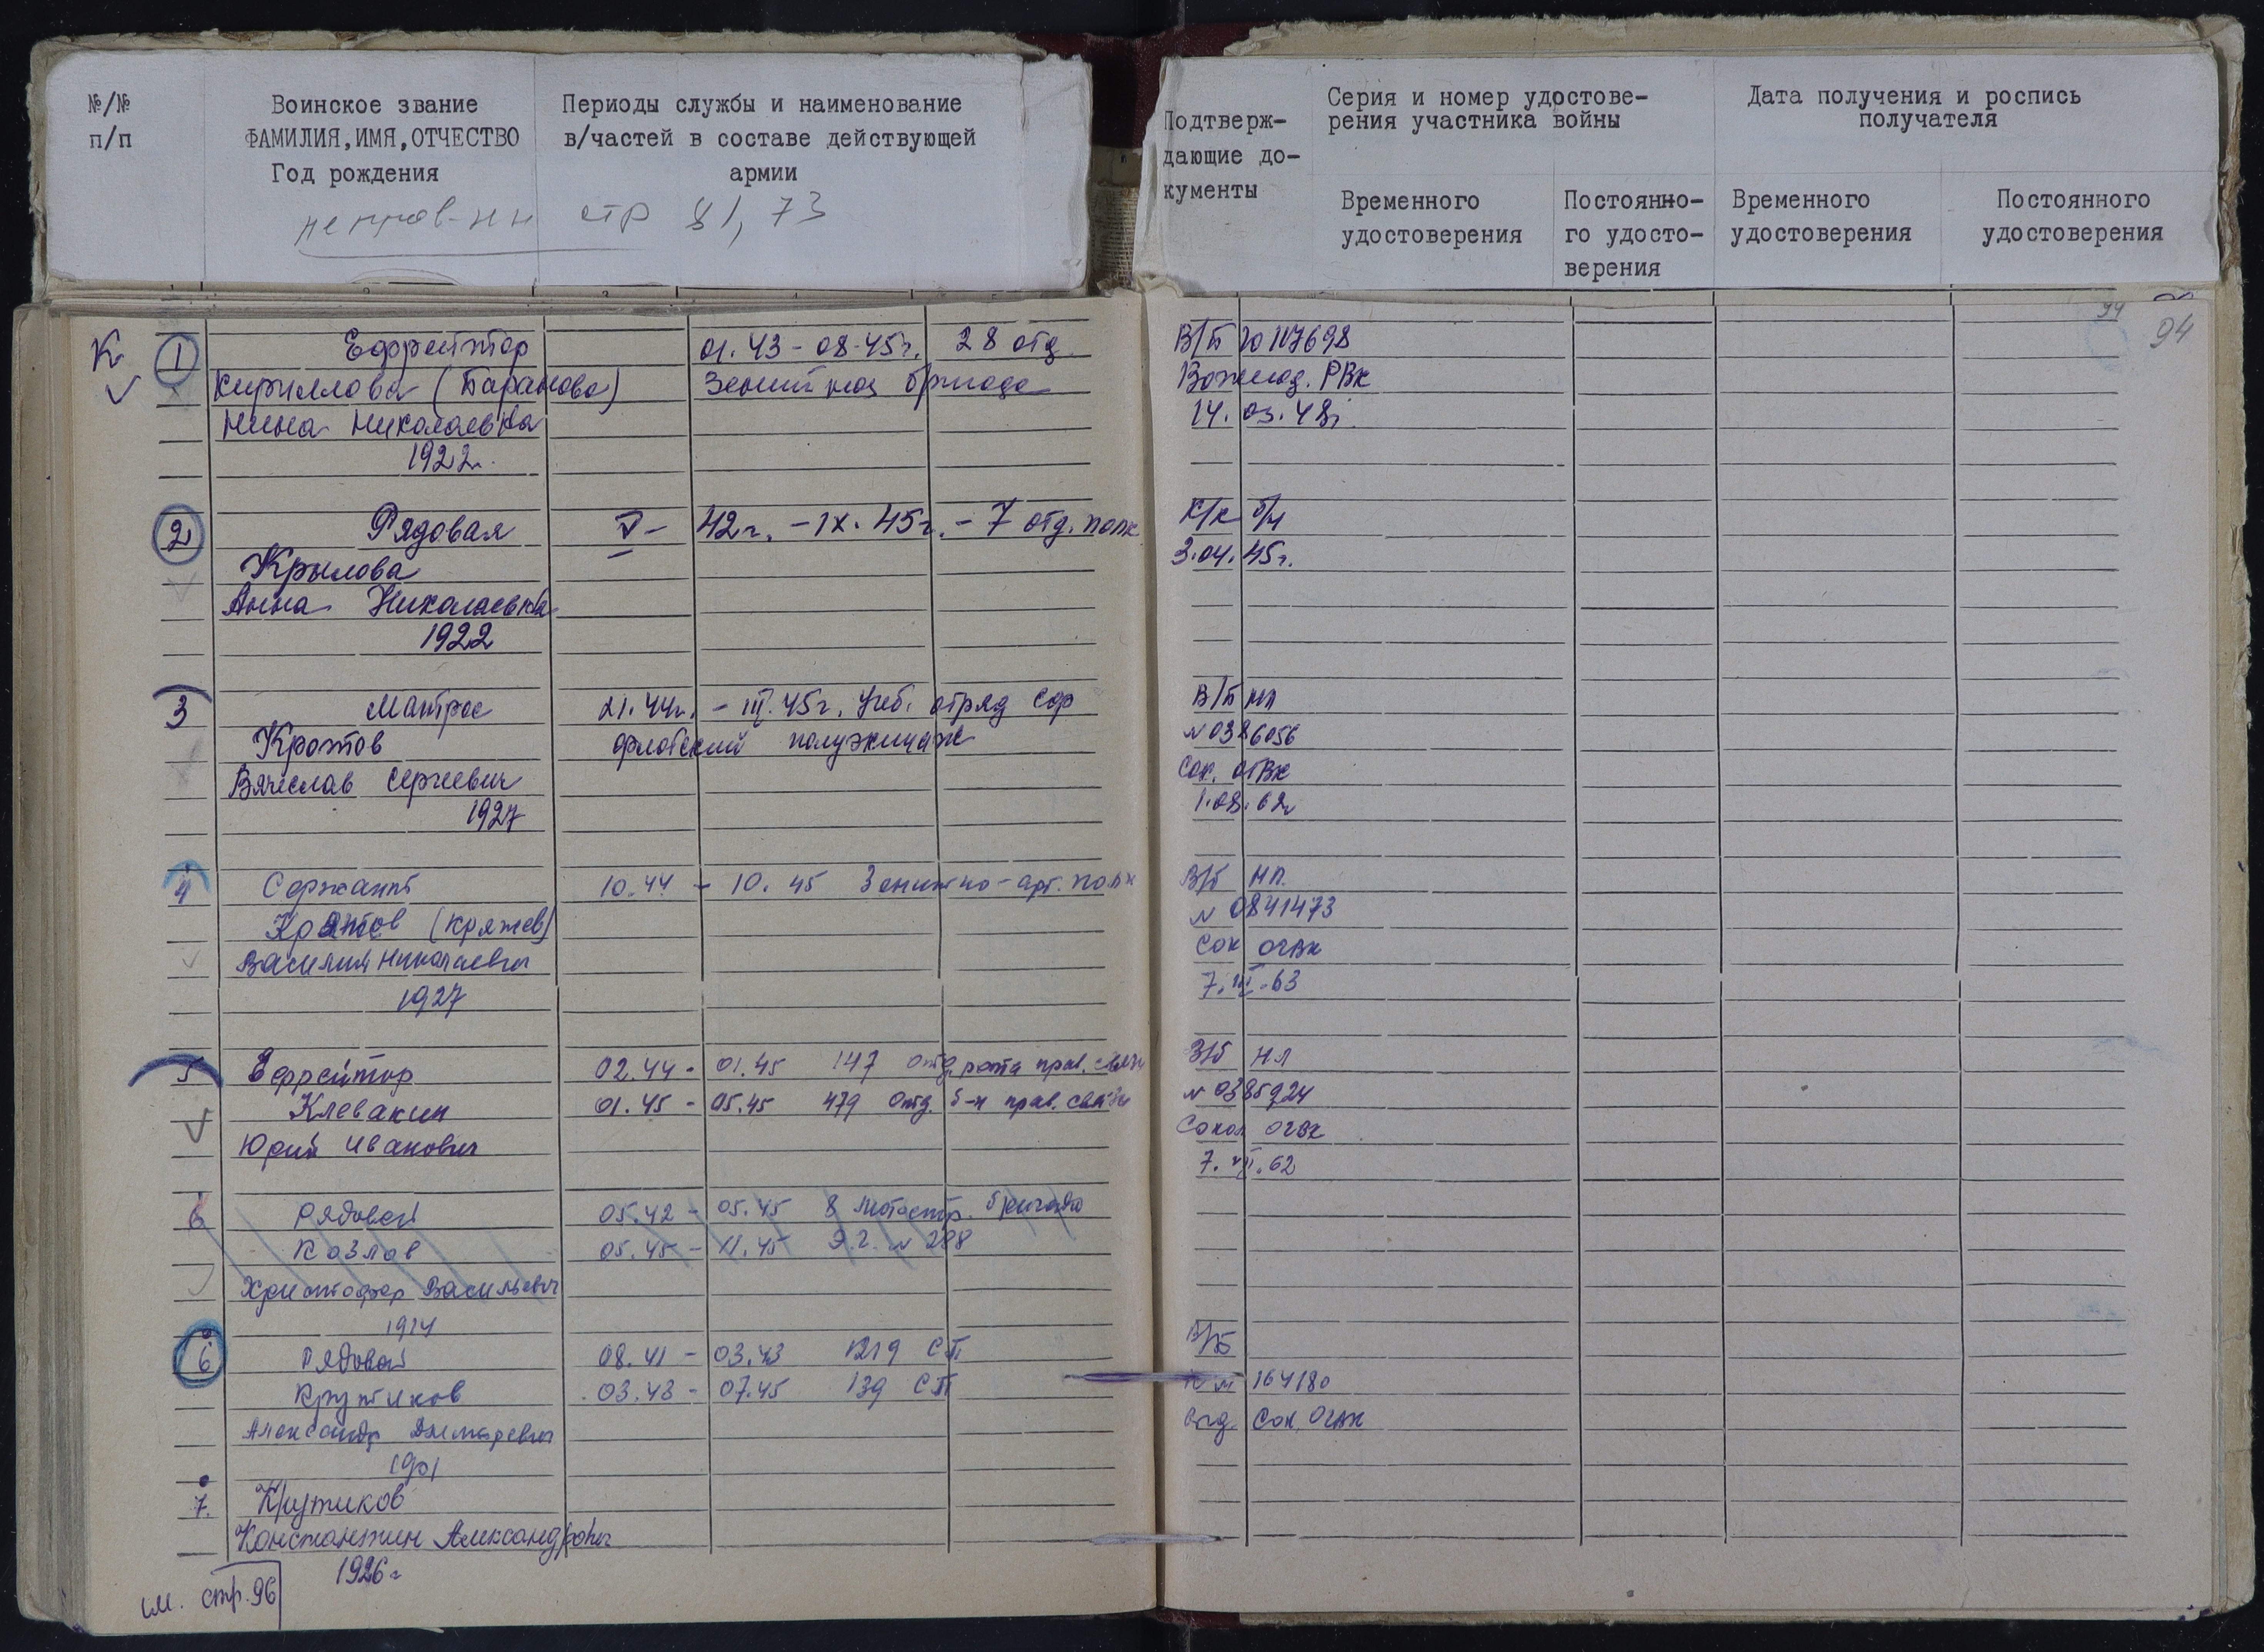 №/№
п/п
Воинское звание
ФАМИЛИЯ, ИМЯ, ОТЧЕСТВО
Год рождения
Периоды службы и наименование
в/частей в составе действующей
армии
стр 81, 73
Подтверж-
дающие до-
кументы
Серия и номер удостове-
рения участника войны
Временного
удостоверения
Постоянно-
го удосто-
верения
Дата получения и роспись
получателя
Временного
удостоверения
Постоянного
удостоверения
94
94
К 1 Ефрейтор 01.43 - 08.45г. 28 отд. В/Б 10117698
Кириллова (Баранова) Зенитная бригада Вожегод. РВК
Нина Николаевна 14. 03. 48г.
1922г.
2 Рядовая V- 42г. - IX. 45г. - 7 отд. полк К/к б/н
Крылова 3.04.45г.
Анна Николаевна
1922
3 Матрос 21.44г. - III. 45г. Учеб. отряд сф В/Б НП
Кротов флотский полуэкипаж № 0386056
Вячеслав Сергеевич Сок. ОГВК
1927 1.08.62г
4 Сержант 10.44 - 10.45 Зенитно-арт. полк В/б НП.
(Кряжев) № 0841473
Василий Николаевич Сок ОГВК
1927 63
5 Ефрейтор 02.44 - 01.45 147 отд. рота прав. связи В/б НП
Клевакин 01.45 - 05.45 479 отд. б-н прав. связи № 0385924
Юрий Иванович Сокол ОГВК
62
6 Рядовой 05.42 - 05.45 8 мотостр. бригада
Козлов 05.45 - 11.45 Э.Г. № 288
Христофор Васильевич
1914
6 Рядовой 08.41 - 03.43 1219 СП В/Б
Крутиков 03.43 - 07.45 139 СП 164180
Александр Сок. ОГВК
1901
7. Крутиков
Константин Александрович
1926г
см. стр. 96